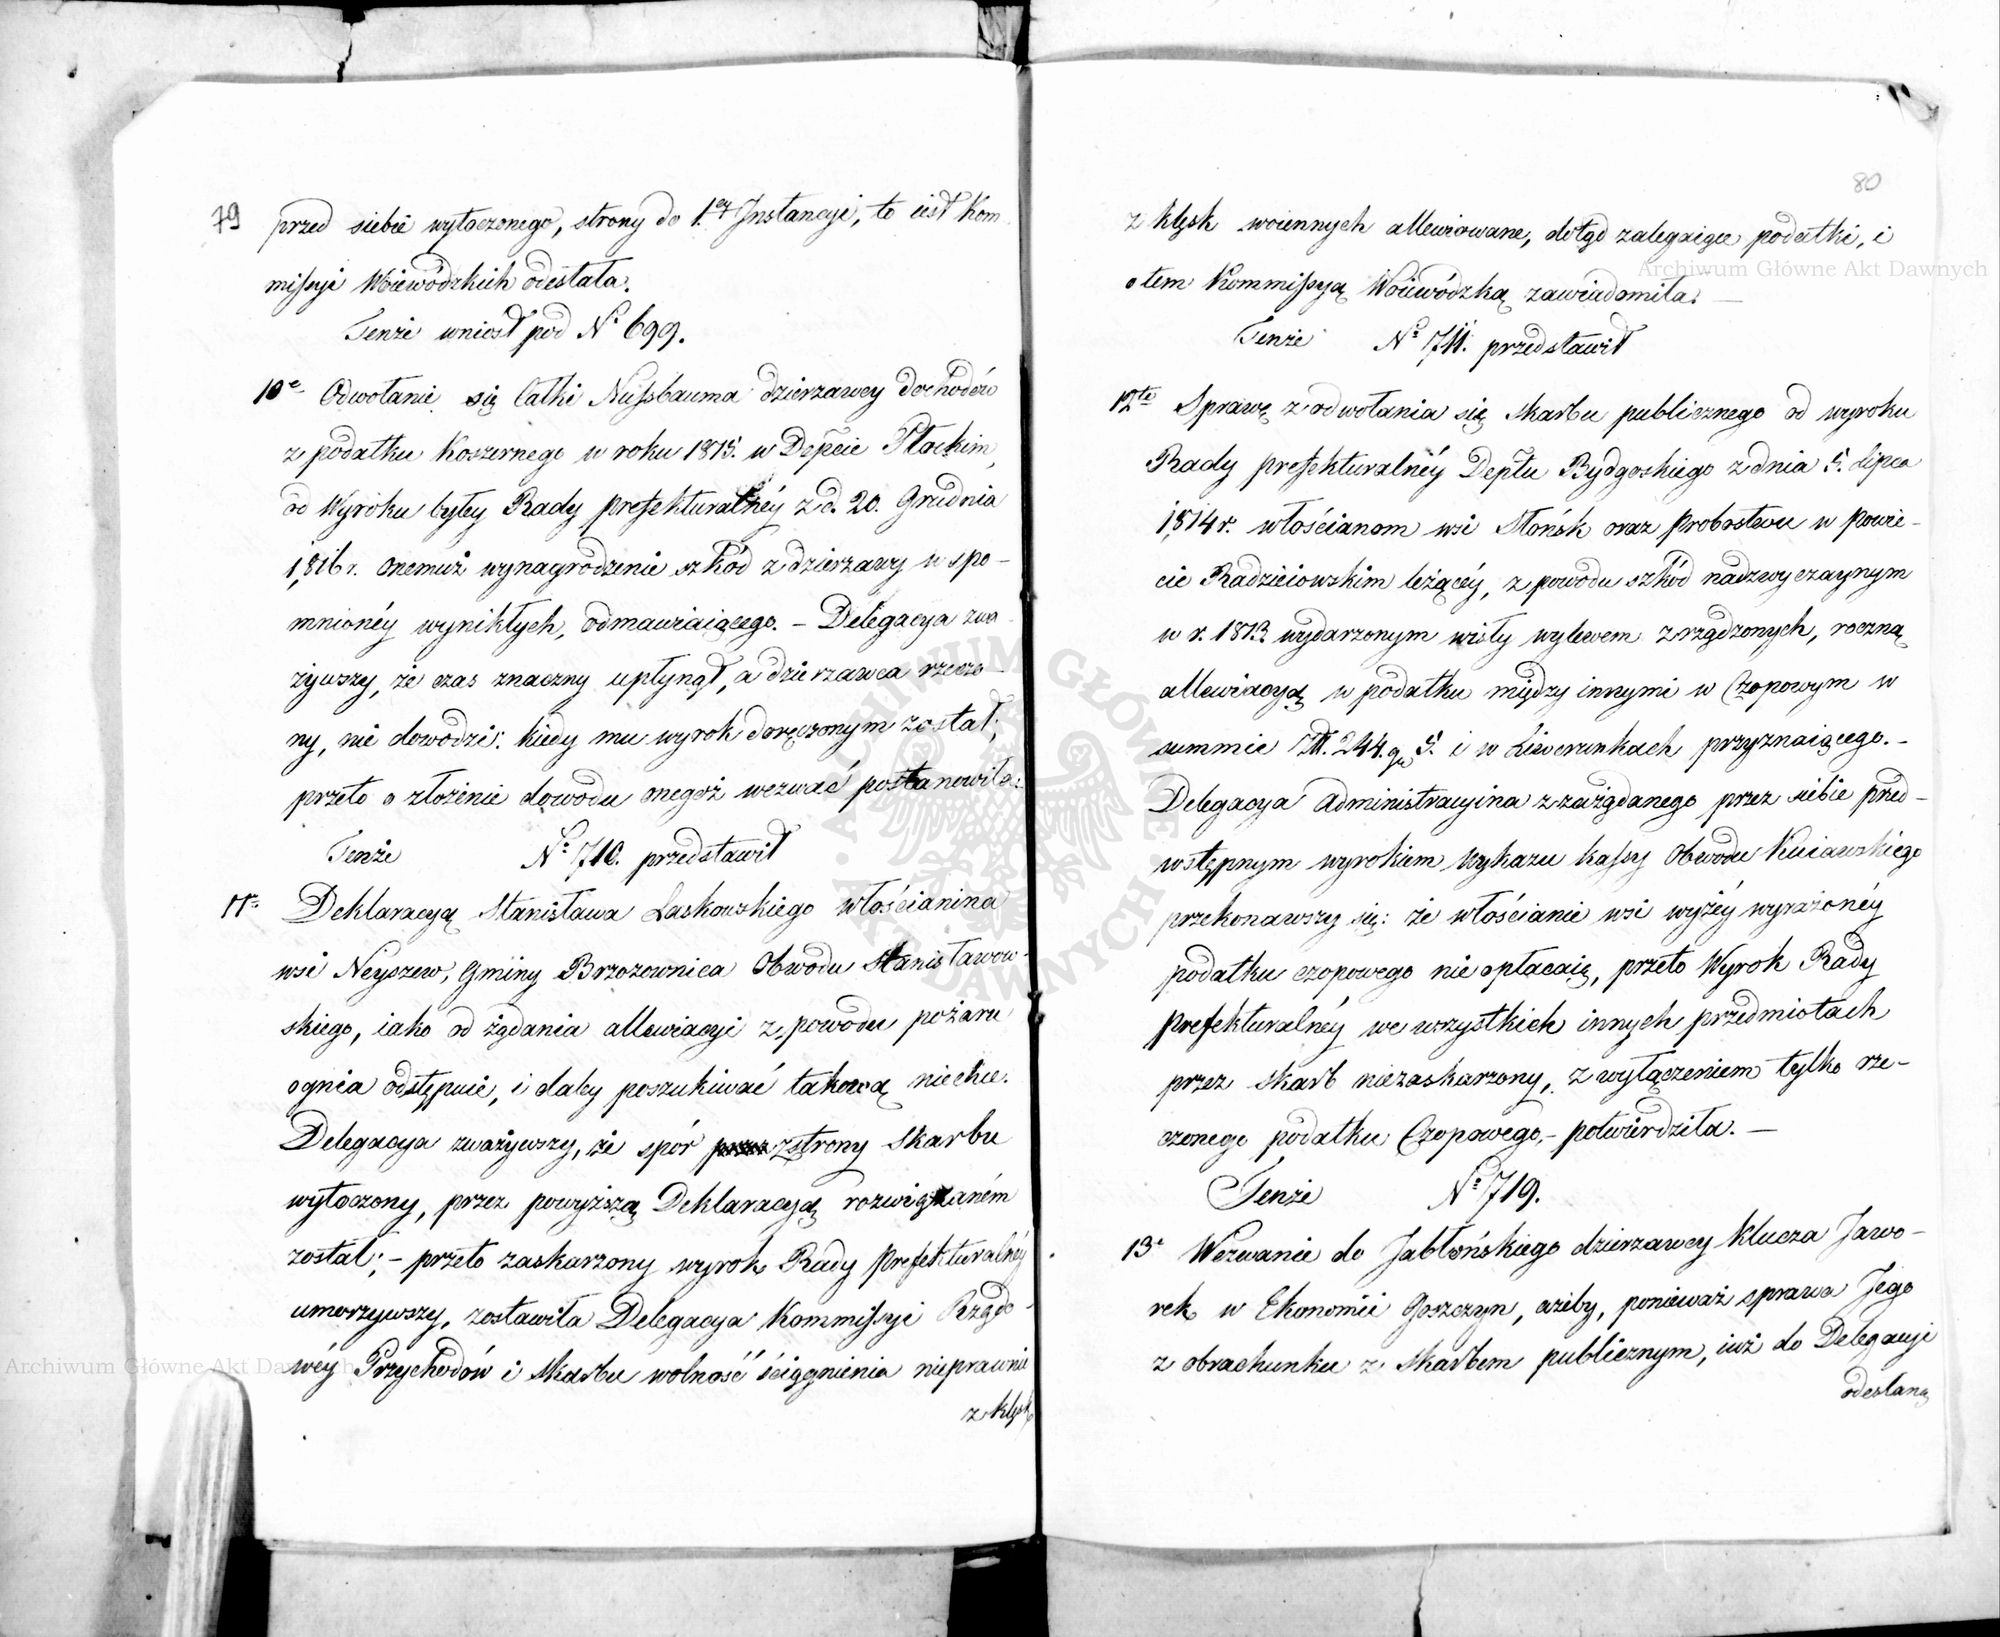 79
przed siebie wytoczonego, strony do 1.ey Instancyi, to iest Kom
missyi Woiewódzkich odesłała.
Tenże wniosł pod No 699.
10e Odwołanie się Całki Nussbauma dzierzawcy dochodów
z podatku Koszernego w roku 1815. w Depcie Płockim,
od Wyroku byłey Rady prefekturalnéy z d. 20. Grudnia
1,816 r. onemuż wynagrodzenie szkód z dzierzawy wspo-
mnionéy wynikłych, odmawiaiącego. – Delegacya zwa
żywszy, że czas znaczny upłynął, a dzierzawca rzeczo-
ny, nie dowodzi: kiedy mu wyrok doręczonym został;
przeto o złożenie dowodu onegoż wezwać postanowiła:
Tenże No 710. przedstawił
11e Deklaracyą Stanisława Laskowskiego włościanina
wsi Neyszew, Gminy Brzozownica Obwodu Stanisławow-
skiego, iako od żądania allewiacyi z powodu pożaru
ognia odstępuie, i daley poszukiwać takową niechce.
Delegacya zważywszy, że spór przez z strony Skarbu
wytoczony, przez powyższą Deklaracyą rozwiązaném
został; – przeto zaskarzony wyrok Rady Prefekturalnéy
umorzywszy, zostawiła Delegacya Kommissyi Rządo-
wéy Przychodów i Skarbu wolność ściągnienia nieprawnie
z klęsk
80
z klęsk woiennych allewiowane, dotąd zalegaiące podatki, i
o tem Kommissyą Woiewódzką zawiadomiła. –
Tenże No 711. przedstawił
12te Sprawę z odwołania się Skarbu publicznego od wyroku
Rady prefekturalnéy Deptu Bydgoskiego z dnia 5. Lipca
1,814 r. włościanom wsi Słońsk oraz Probostwu w Powie-
cie Radzieiowskim leżącéy, z powodu szkód nadzwyczaynym
w r. 1813. wydarzonym wisły wylewem zrządzonych, roczną
allewiacyą w podatku między innymi w Czopowym w
summie Zł. 244. gr 5. i w Liwerunkach przyznaiącego. –
Delegacya Administracyina z zażądanego przez siebie przed-
wstępnym wyrokiem wykazu kassy Obwodu Kuiawskiego
przekonawszy się: że włościanie wsi wyżéy wyrażonéy
podatku czopowego nie opłacaią, przeto Wyrok Rady
Prefekturalnéy we wszystkich innych przedmiotach
przez Skarb niezaskarzony, z wyłączeniem tylko rze-
czonego podatku Czopowego, – potwierdziła. –
Tenże No 719.
13e Wezwanie do Jabłońskiego dzierzawcy klucza Jawo-
rek w Ekonomii Goszczyn, ażeby, ponieważ sprawa Jego
z obrachunku z Skarbem publicznym, iuż do Delegacyi
odesłaną
Archiwum Główne Akt Dawnych
Archiwum Główne Akt Dawnych
ARCHIWUM GŁÓWNE AKT DAWNYCH